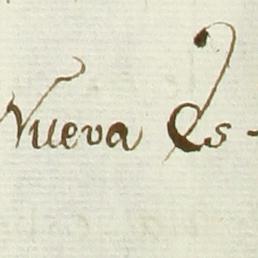 Nueva Es-